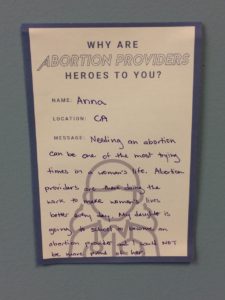 WHY ARE
ABORTION PROVIDERS
HEROES TO YOU?
NAME: Anna
LOCATION: CA
MESSAGE: Needing an abortion
can be one of the most trying
times in a woman's life. Abortion
providers are there doing the
work to make women's lives
better every day. My daughter is
going to school to become an
abortion provider and I could NOT
be more proud of her.